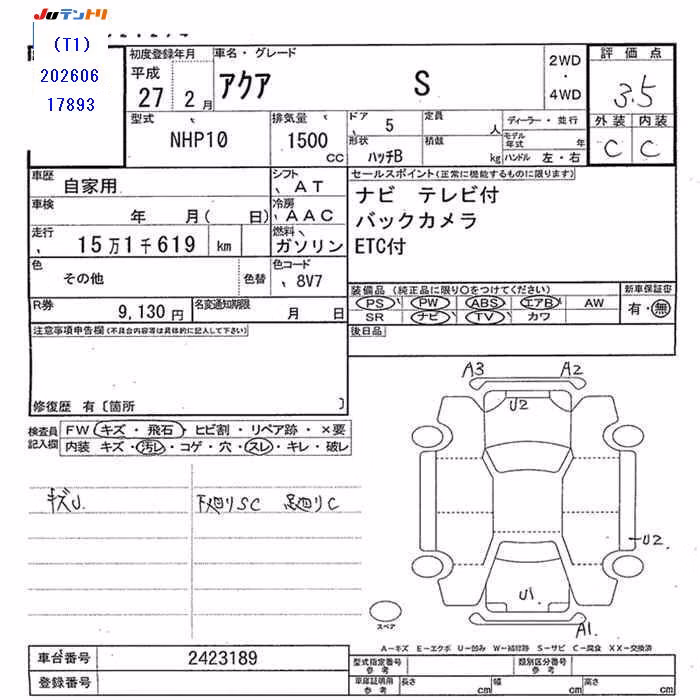 JUテントリ
(T1)
202606
17893
初度登録年月
平成
27 2 月
車名・グレード
アクア S
2WD
・
4WD
評価点
3.5
外装 内装
C C
型式
NHP10
排気量
1500
CC
ドア
5
定員
人
形状
ハッチB
積載
kg
ディーラー・並行
モデル年式
年
ハンドル 左・右
車歴
自家用
シフト
AT
車検
年 月( 日)
冷房
AAC
走行
15万1千619 km
燃料
ガソリン
色
その他
色替
色コード
8V7
R券
9,130円
名変通知期限
月 日
セールスポイント(正常に機能するものに限ります)
ナビ テレビ付
バックカメラ
ETC付
装備品(純正品に限り○をつけてください)
PS PW ABS エアB AW
SR ナビ TV カワ
新車保証書
有・無
後日品
注意事項申告欄(不具合内容等は具体的に記入して下さい)
修復歴 有〔箇所 〕
検査員記入欄
FW キズ・飛石・ヒビ割・リペア跡・×要
内装 キズ・汚レ・コゲ・穴・スレ・キレ・破レ
キズU
下廻りSC 足廻りC
A3
A2
U2
U2
U1
A1
スペア
A-キズ E-エクボ U-凹み W-補修跡 S-サビ C-腐食 XX-交換済
車台番号
2423189
登録番号
型式指定番号
参考
類別区分番号
参考
車庫証明用
参考
長さ cm
幅 cm
高さ cm